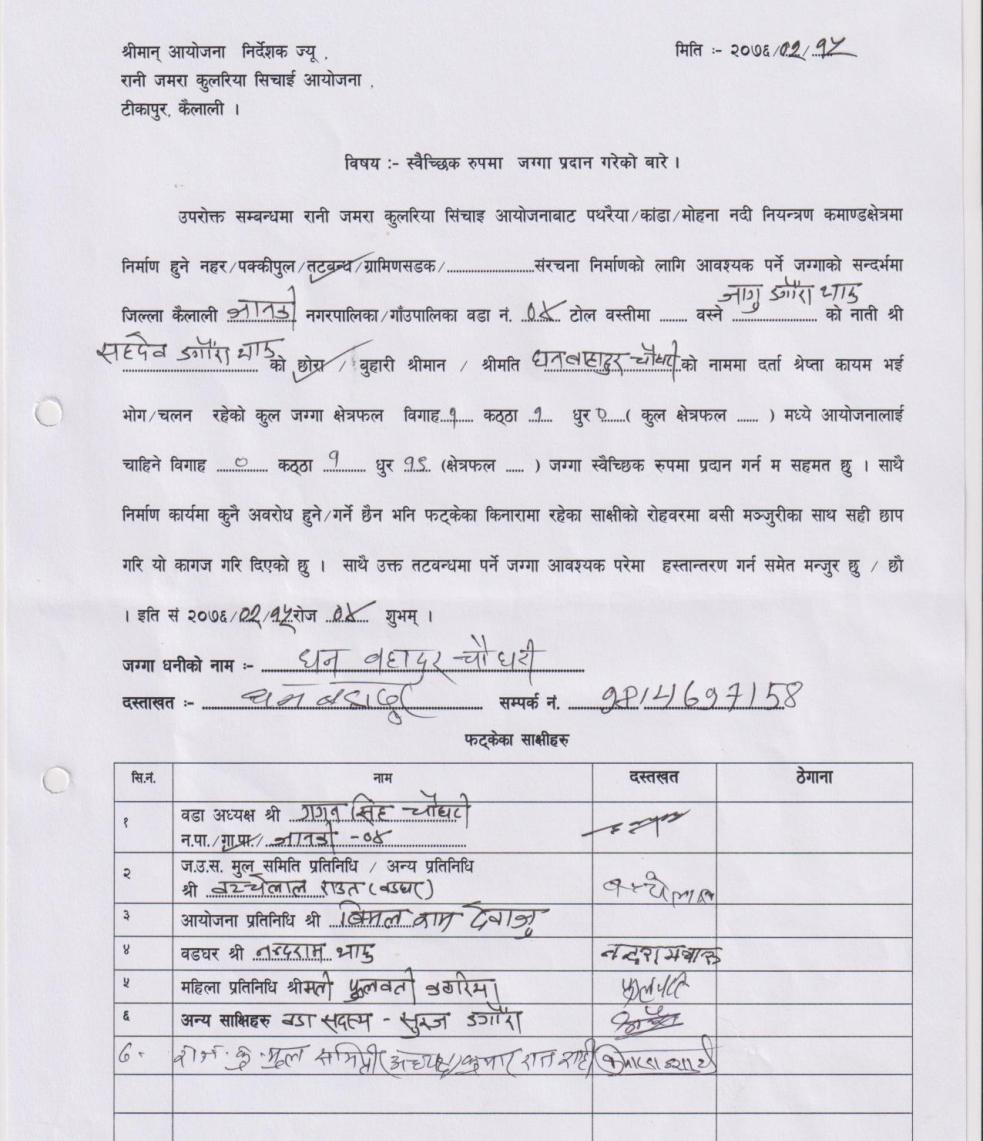 श्रीमान् आयोजना निर्देशक ज्यू ,
मिति :- २०७६/०२/१५
रानी जमरा कुलरिया सिचाई आयोजना ,
टीकापुर, कैलाली ।
विषय :- स्वैच्छिक रुपमा जग्गा प्रदान गरेको बारे ।
उपरोक्त सम्बन्धमा रानी जमरा कुलरिया सिंचाइ आयोजनाबाट पथरैया/कांडा/मोहना नदी नियन्त्रण कमाण्डक्षेत्रमा
निर्माण हुने नहर/पक्कीपुल/तटबन्ध/ग्रामिणसडक/....................संरचना निर्माणको लागि आवश्यक पर्ने जग्गाको सन्दर्भमा
जिल्ला कैलाली जानकी नगरपालिका/गाँउपालिका वडा नं. ०४ टोल वस्तीमा ....... वस्ने जागु डगौरा थारु को नाती श्री
सहदेव डगौरा थारु को छोरा / बुहारी श्रीमान / श्रीमति धनबहादुर चौधरी को नाममा दर्ता श्रेष्ता कायम भई
भोग/चलन रहेको कुल जग्गा क्षेत्रफल विगाह १ कठ्ठा १ धुर ० ( कुल क्षेत्रफल ...... ) मध्ये आयोजनालाई
चाहिने विगाह ० कठ्ठा १ धुर (क्षेत्रफल ..... ) जग्गा स्वैच्छिक रुपमा प्रदान गर्न म सहमत छु । साथै
निर्माण कार्यमा कुनै अवरोध हुने/गर्ने छैन भनि फट्केका किनारामा रहेका साक्षीको रोहवरमा बसी मञ्जुरीका साथ सही छाप
गरि यो कागज गरि दिएको छु । साथै उक्त तटवन्धमा पर्ने जग्गा आवश्यक परेमा हस्तान्तरण गर्न समेत मन्जुर छु / छौ
। इति सं २०७६/०२/१५ रोज ०४ शुभम् ।
जग्गा धनीको नाम :- धन बहादुर चौधरी
दस्ताखत :- धन बहादुर सम्पर्क नं. 9814697158
फट्केका साक्षीहरु
सि.नं. नाम दस्तखत ठेगाना
१ वडा अध्यक्ष श्री गगन सिंह चौधरी
न.पा./गा.पा./ जानकी -०४
२ ज.उ.स. मुल समिति प्रतिनिधि / अन्य प्रतिनिधि
श्री बच्चेलाल राउत (वडघर) बच्चेलाल
३ आयोजना प्रतिनिधि श्री बिमल काम देवाजु
४ वडघर श्री नन्दराम थारु नन्दराम थारु
५ महिला प्रतिनिधि श्रीमती फुलवती कठरिया फुलमती
६ अन्य साक्षिहरु वडा सदस्य - सुरज डगौरा
७. मुल समिती अध्यक्ष/कुमार राज शाही